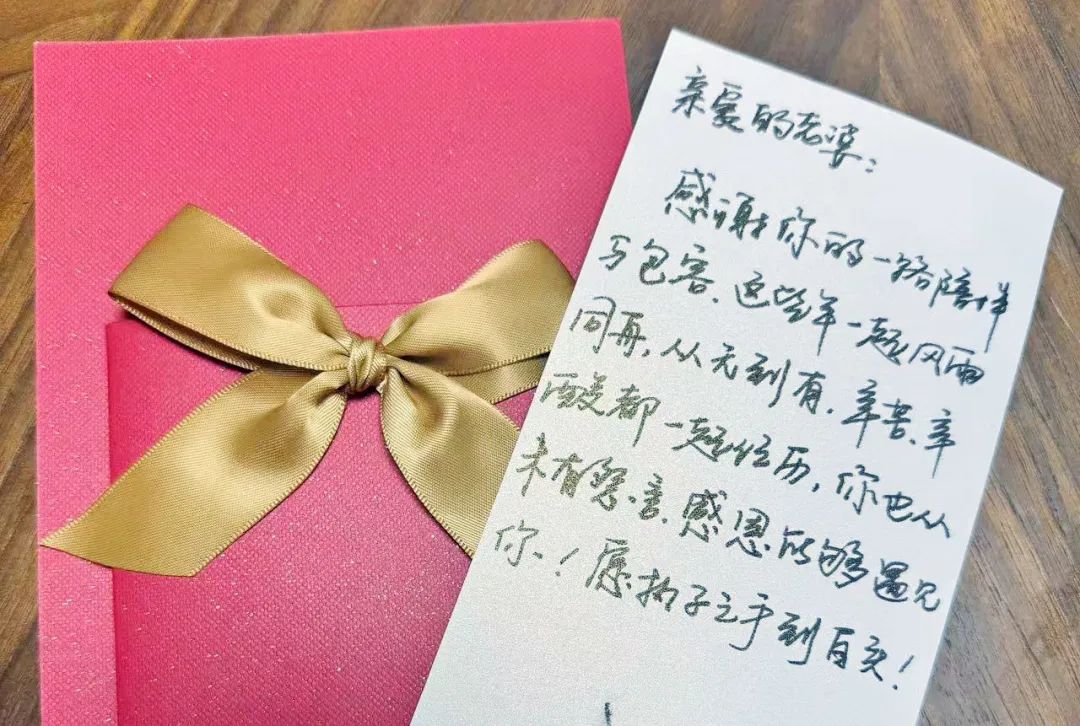 亲爱的老婆:
感谢你的一路陪伴
与包容、这些年一起风雨
同舟,从无到有,辛苦、辛
酸都一起经历,你也从
未有怨言,感恩能够遇见
你!愿执子之手到白头!